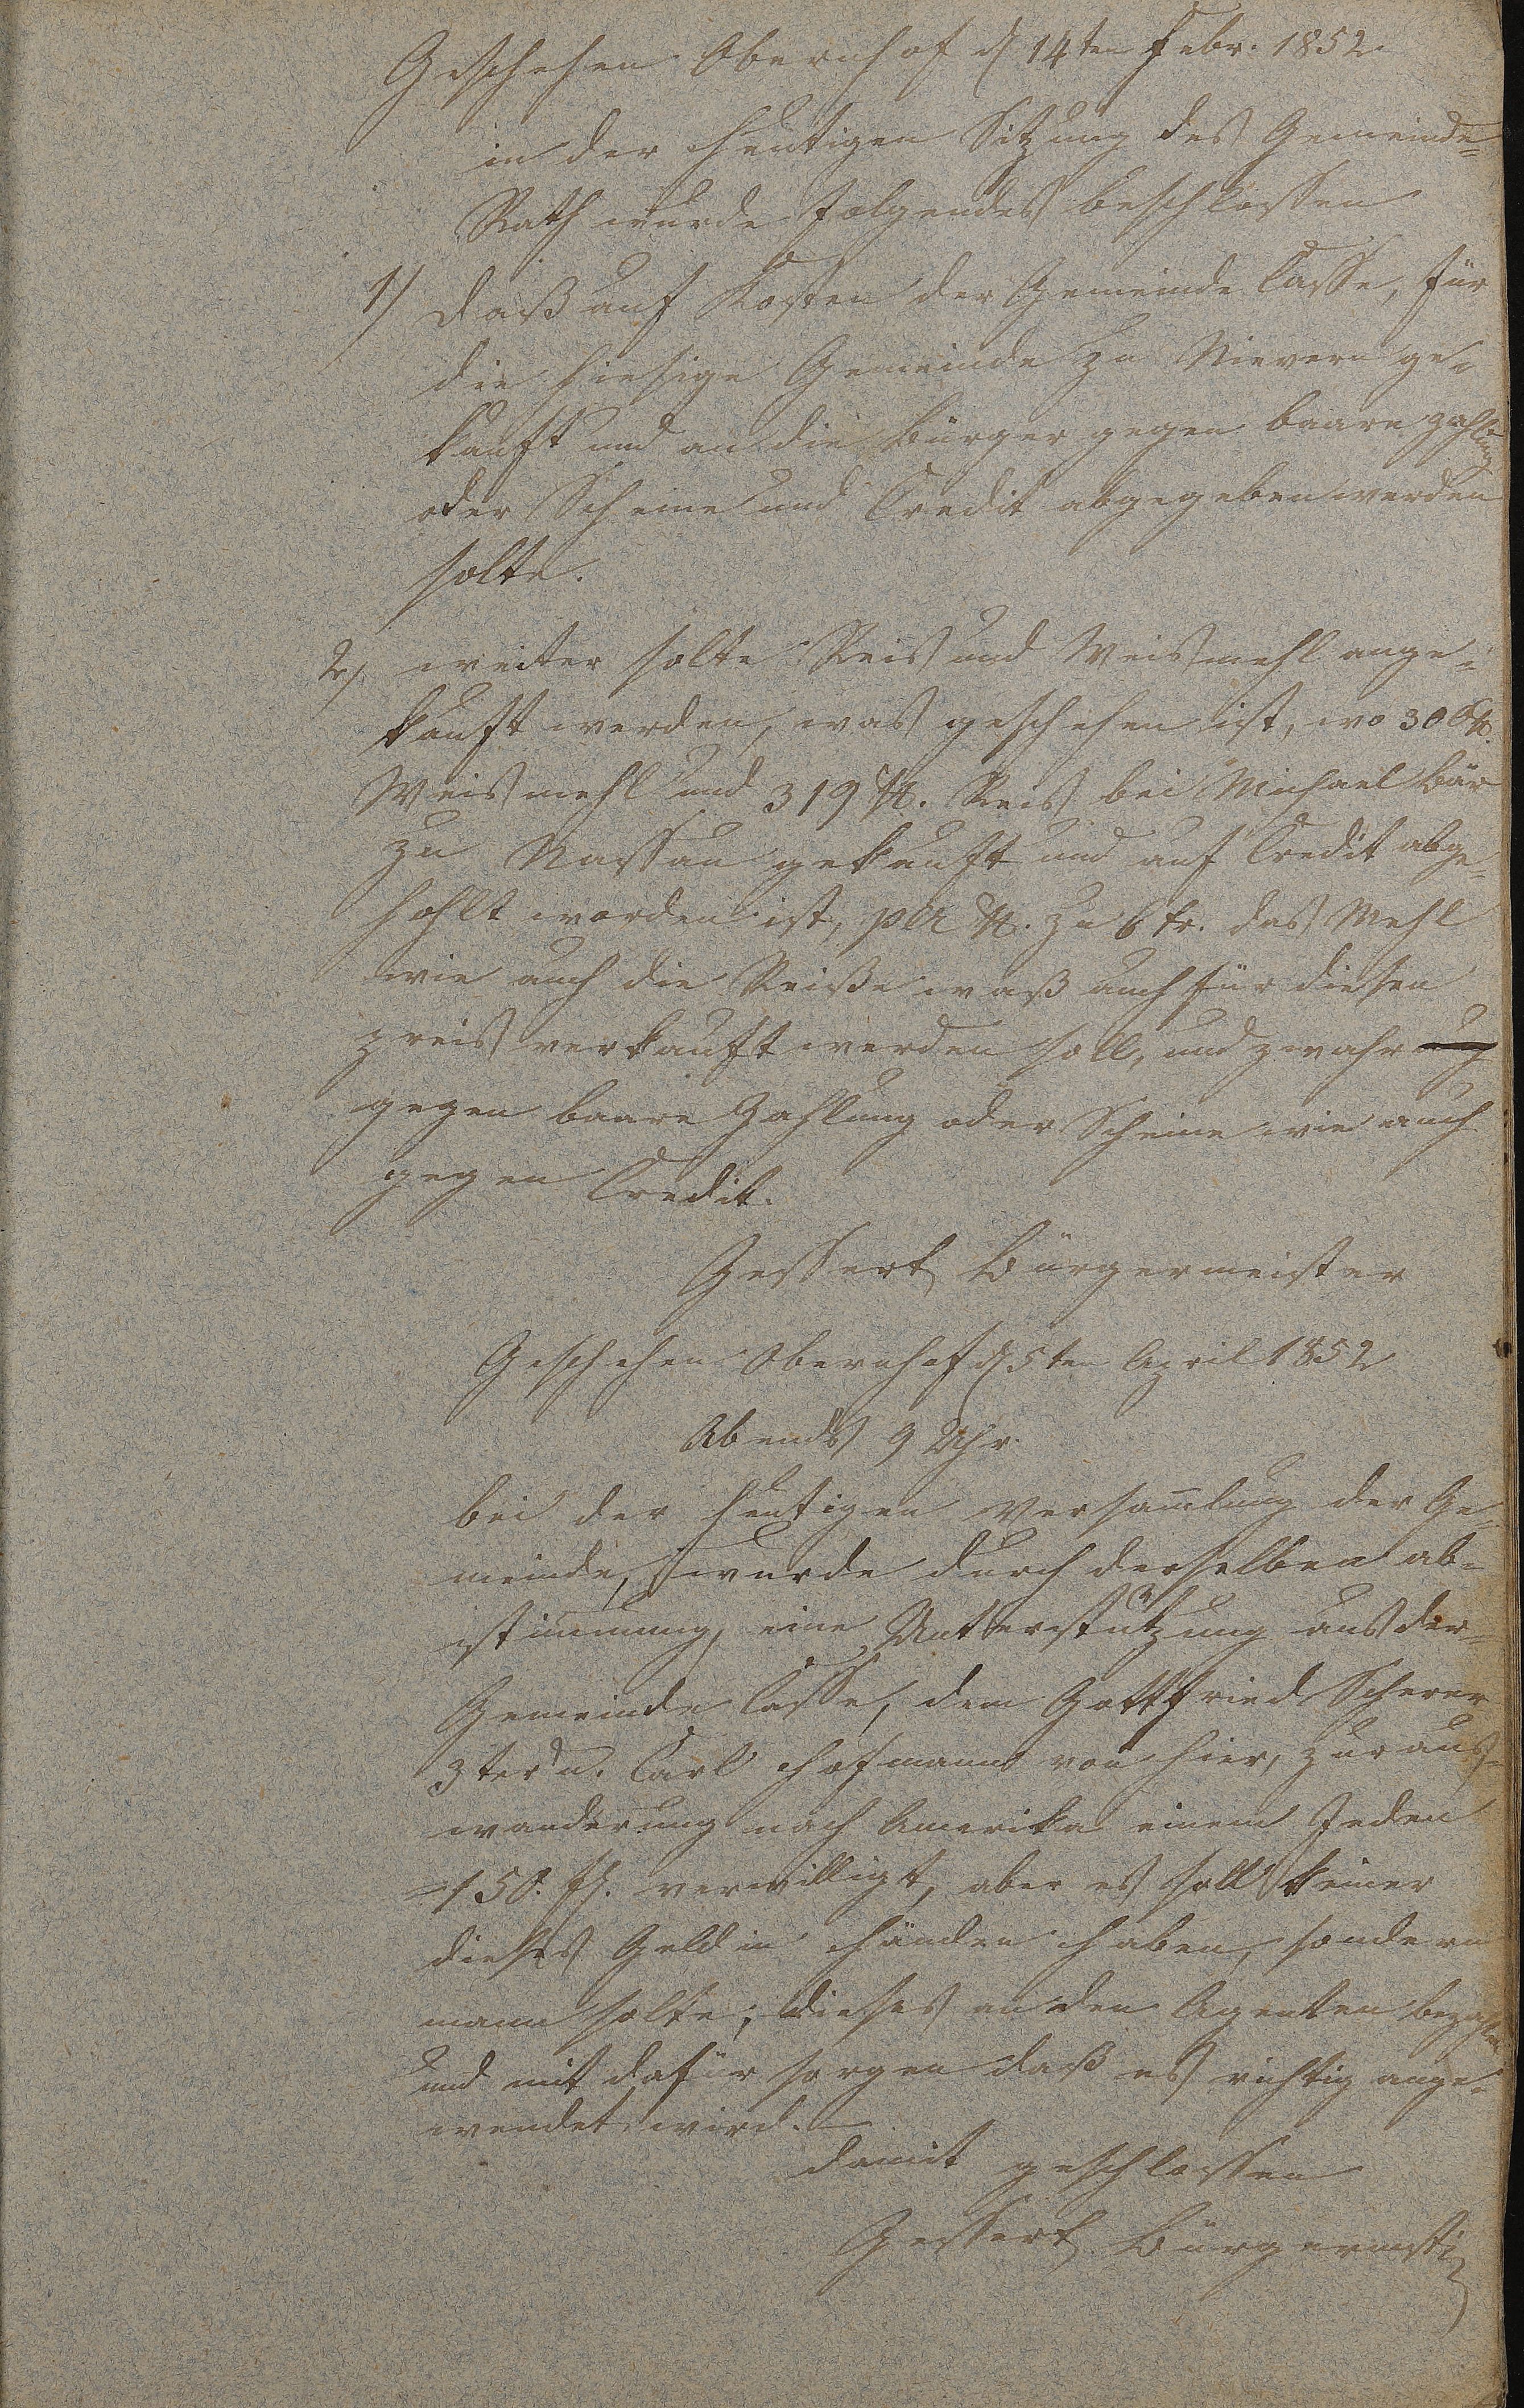 Geschehen Obernhof d 14ten Febr. 1852
in der heutigen Sitzung des Gemeinde=
Rath wurde folgendes beschlossen
1/ daß auf Kosten der Gemeinde Casse, für
die hiesige Gemeinde zu Nievern ge=
kauft und an die Bürger gegen baare zahlung
oder Scheine und Credit abgegeben werden
solte.
2/ weiter solte Reis und Weismehl ange=
kauft werden, was geschehen ist, wo 300 ℔.
Weismehl und 319 ℔. Reis bei Michael Bär
zu Nassau gekauft und auf Credit abge=
hohlt worden ist, per ℔. zu 6 kr. das Mehl
wie auch die Reiße waß auch für diesen
preis verkauft werden soll, und zwahr
gegen baare Zahlung oder Scheine wie auch
gegen Credit.
Gessert Bürgermeister
Geschehen Obernhof d 5ten April 1852
Abends 9 Uhr.
bei der heutigen Versam̅lung der Ge=
meinde, wurde durch derselben ab=
stimmung, eine Unterstützung aus der=
Gemeinde Casse, dem Gottfried Scherer
3ter u. Carl Hofmann von hier, zur aus=
wanderung nach Amerika einem Jeden
=150. fl. verwilligt, aber es soll keiner
dieses Geld in Händen haben, sondern
mann solte; dieses an den Agenten bezahlen
und mit dafür sorgen daß es richtig ange=
wendet wird.
damit geschlossen
Gessert Bürgermstr